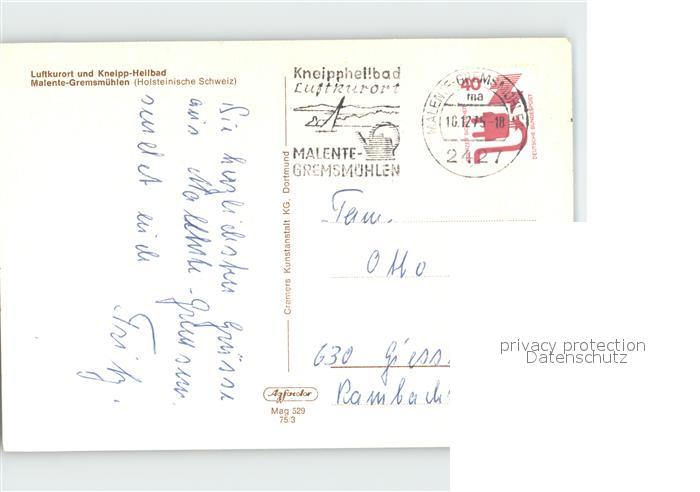 Luftkurort und Kneipp-Heilbad
Malente-Gremsmühlen (Holsteinische Schweiz)
Die herzlichsten Grüsse
aus Malente-Gremsm.
sendet euch
Fritz.
Cramers Kunstanstalt KG. Dortmund
Kneippheilbad
Luftkurort
MALENTE-
GREMSMÜHLEN
MALENTE-GREMSMÜHLEN
16.12.75-18
2427
40
DEUTSCHE BUNDESPOST
Fam.
Otto
630 Giess.
Rambach
Agfacolor
Mag 529
75/3
privacy protection
Datenschutz